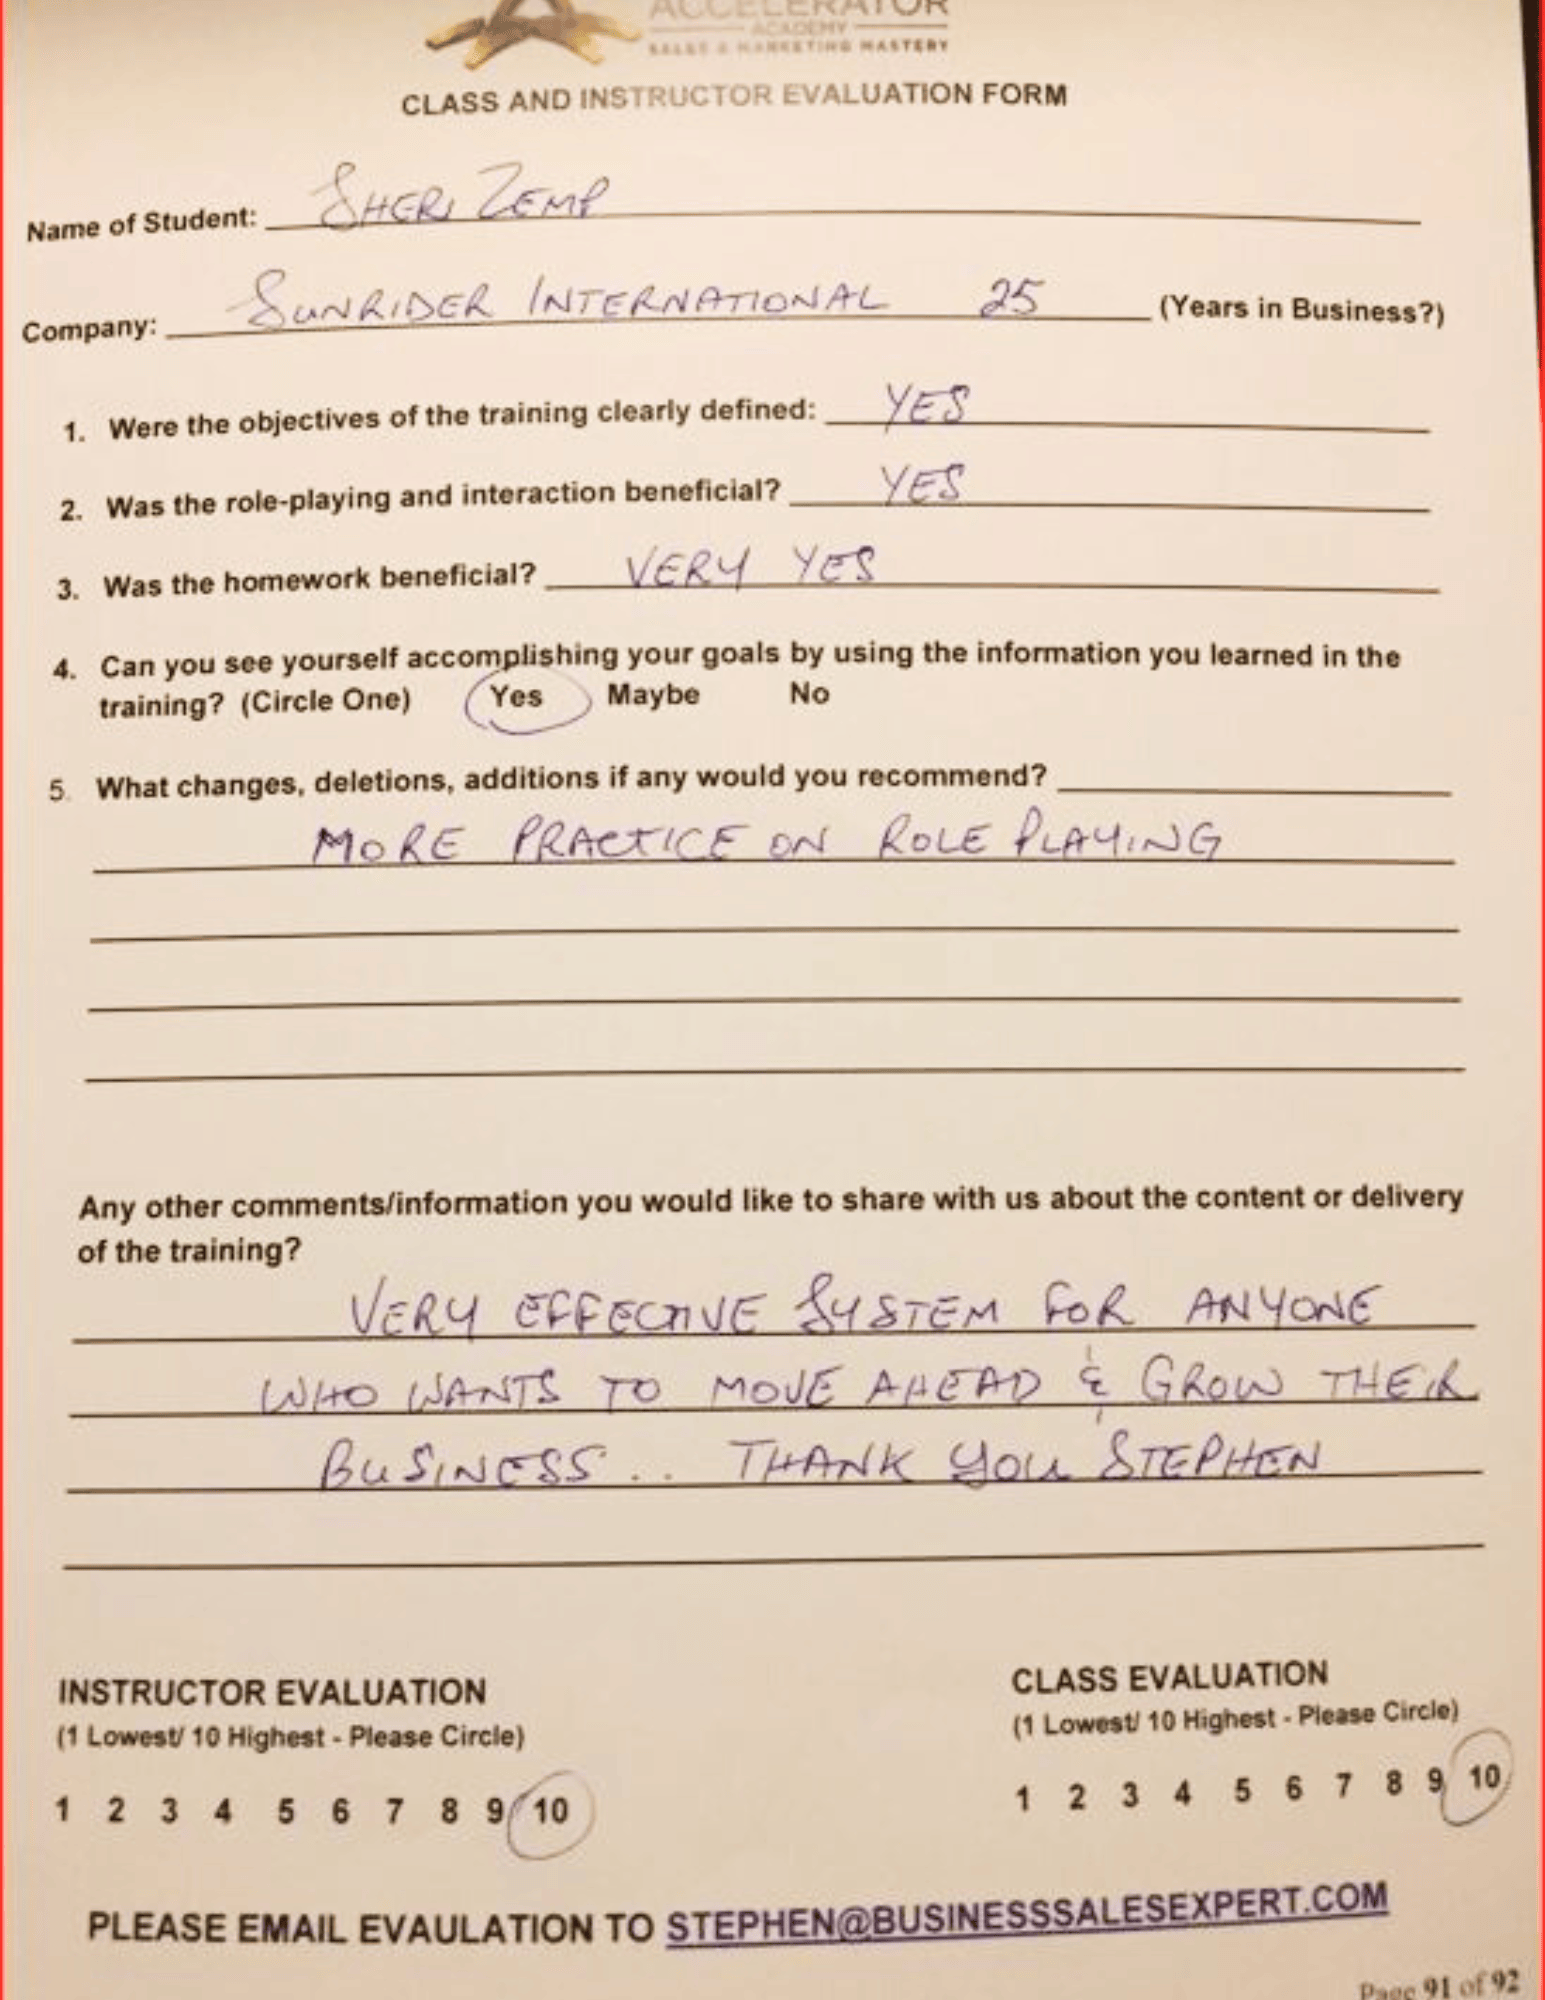 ACCELERATOR
ACADEMY
SALES & MARKETING MASTERY
CLASS AND INSTRUCTOR EVALUATION FORM
Name of Student: SHERI ZEMP
Company: SUNRIDER INTERNATIONAL 25 (Years in Business?)
1. Were the objectives of the training clearly defined: YES
2. Was the role-playing and interaction beneficial? YES
3. Was the homework beneficial? VERY YES
4. Can you see yourself accomplishing your goals by using the information you learned in the
training? (Circle One) Yes Maybe No
5. What changes, deletions, additions if any would you recommend?
MORE PRACTICE ON ROLE PLAYING
Any other comments/information you would like to share with us about the content or delivery
of the training?
VERY EFFECTIVE SYSTEM FOR ANYONE
WHO WANTS TO MOVE AHEAD & GROW THEIR
BUSINESS .. THANK YOU STEPHEN
INSTRUCTOR EVALUATION
(1 Lowest/ 10 Highest - Please Circle)
1 2 3 4 5 6 7 8 9 10
CLASS EVALUATION
(1 Lowest/ 10 Highest - Please Circle)
1 2 3 4 5 6 7 8 9 10
PLEASE EMAIL EVAULATION TO STEPHEN@BUSINESSSALESEXPERT.COM
Page 91 of 92